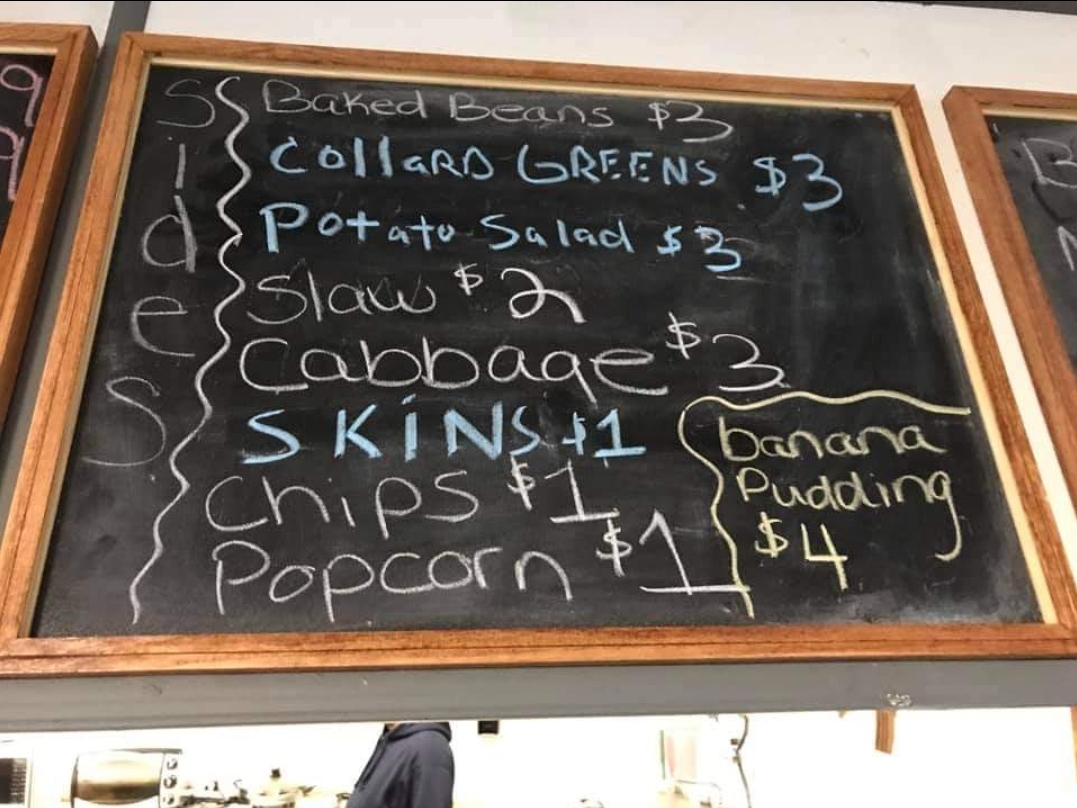 Sides
Baked Beans $3
Collard GREENS $3
Potato Salad $3
Slaw $2
Cabbage $3
SKiNS $1
Chips $1
Popcorn $1
banana
Pudding
$4